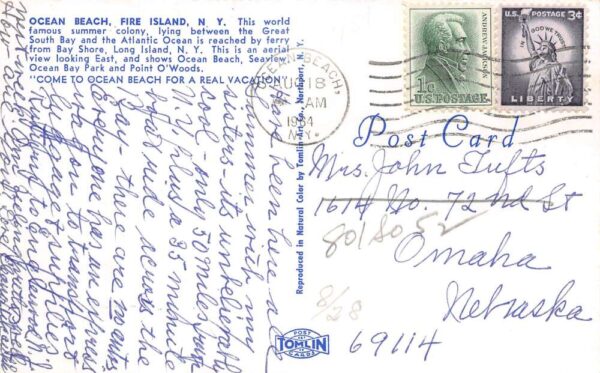 OCEAN BEACH, FIRE ISLAND, N. Y. This world
famous summer colony, lying between the Great
South Bay and the Atlantic Ocean is reached by ferry
from Bay Shore, Long Island, N. Y. This is an aerial
view looking East, and shows Ocean Beach, Seaview,
Ocean Bay Park and Point O'Woods.
"COME TO OCEAN BEACH FOR A REAL VACATION"
have been here all
summer with my
sisters - its unbelievably
cool - only 50 miles from
N.Y. plus a 35 minute
ride across the
bay - there are no autos
Everyone has an express
wagon to transport
luggage & supplies
Reproduced in Natural Color by Tomlin Art Co., Northport, N. Y.
BEACH,
AUG 18
AM
1964
N.Y.
ANDREW JACKSON
1c
U.S. POSTAGE
U.S. POSTAGE 3¢
IN GOD WE TRUST
LIBERTY
Post Card
Mrs. John Tufts
1614 No. 72nd St
8018 52
Omaha
Nebraska
69114
8/28
POST
TOMLIN
CARDS